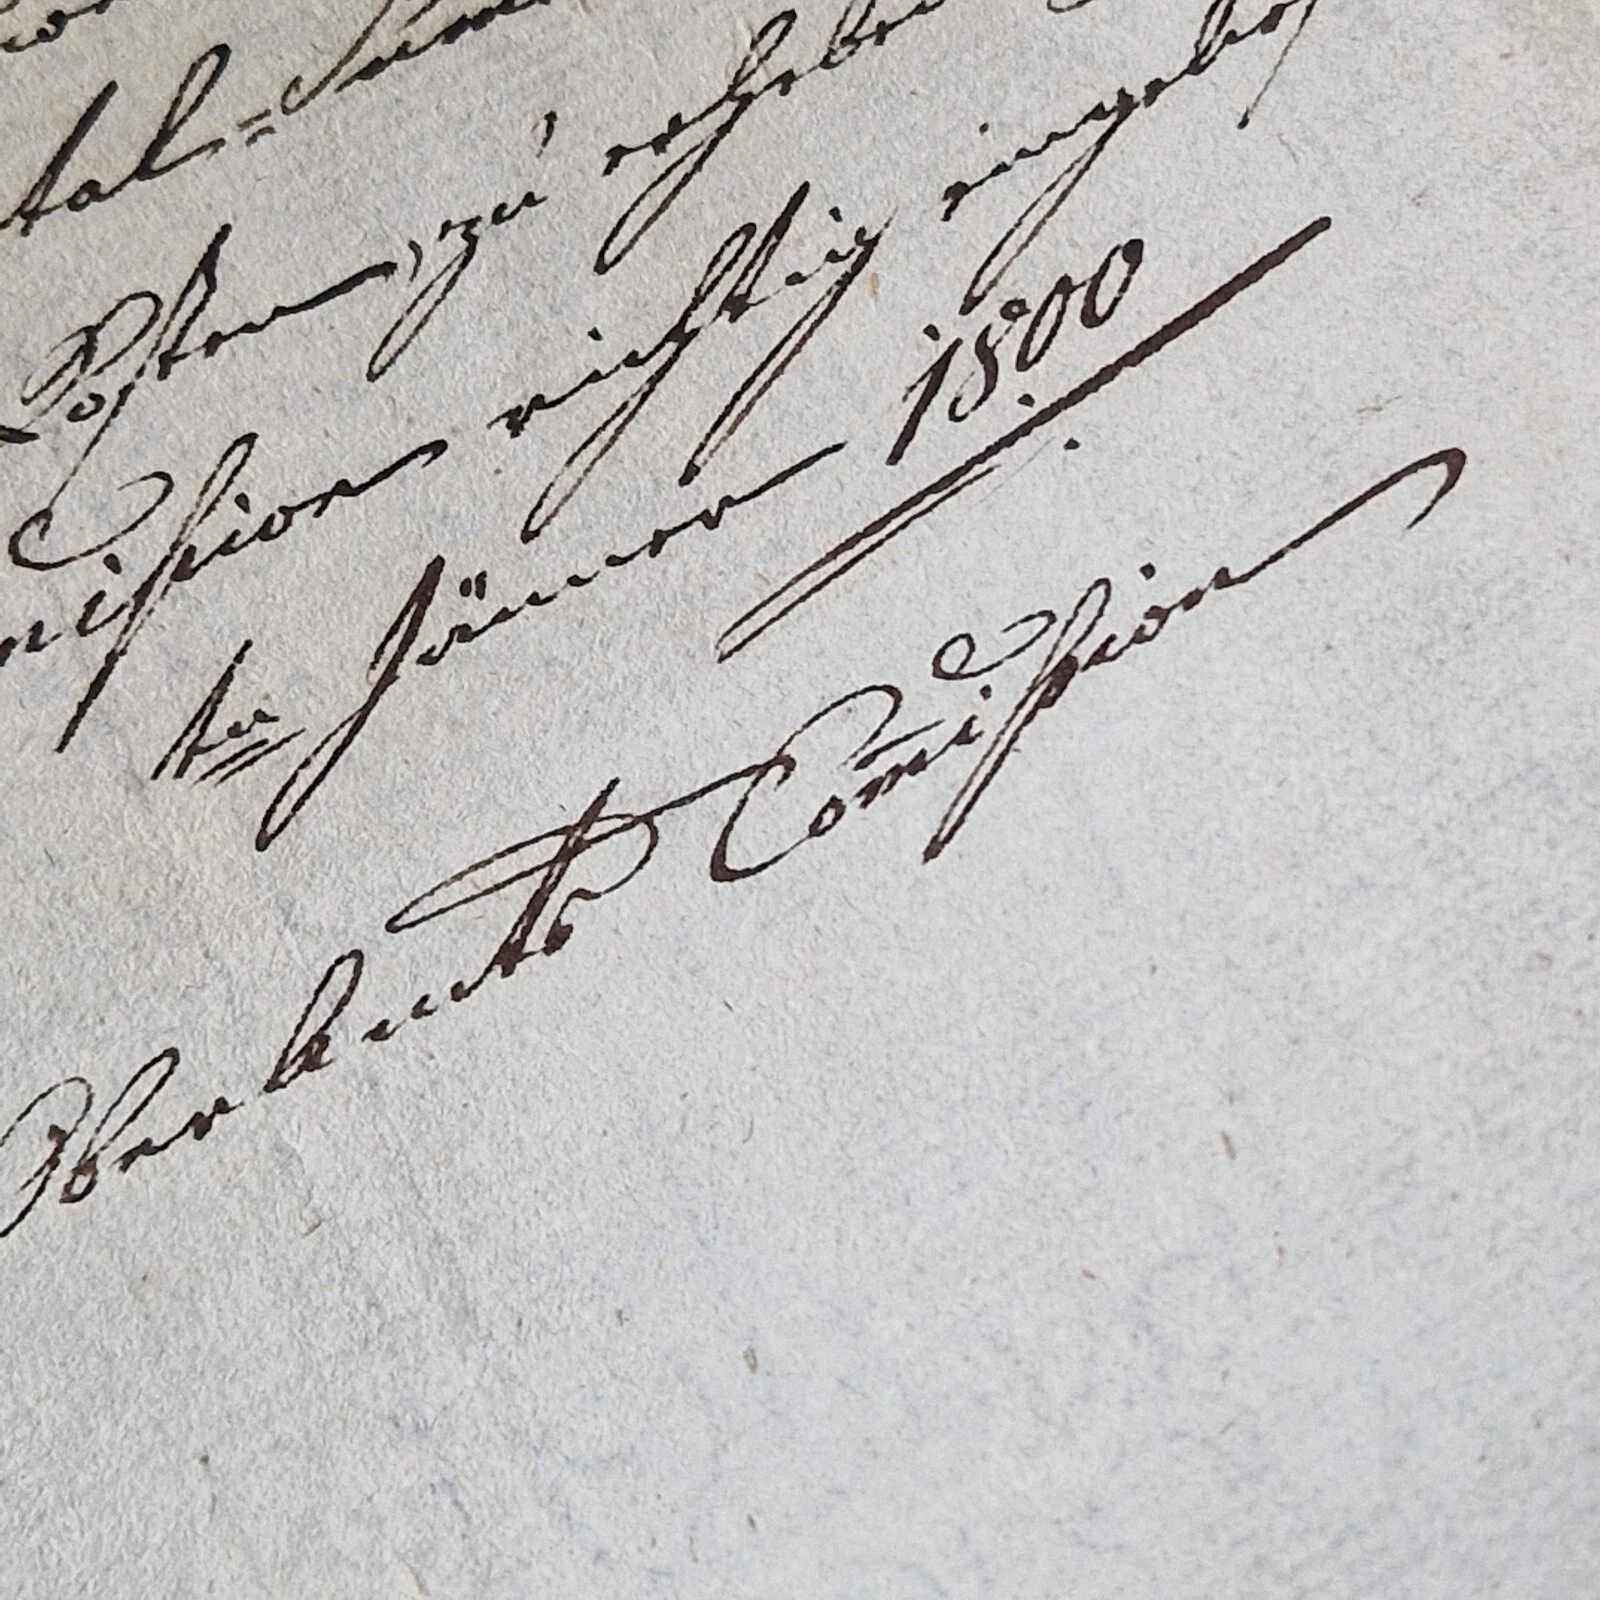 tal=Sum
Posten, zu erheben
mission richtig eingeho
ten Jänner 1800
Oberamts Com̄ission